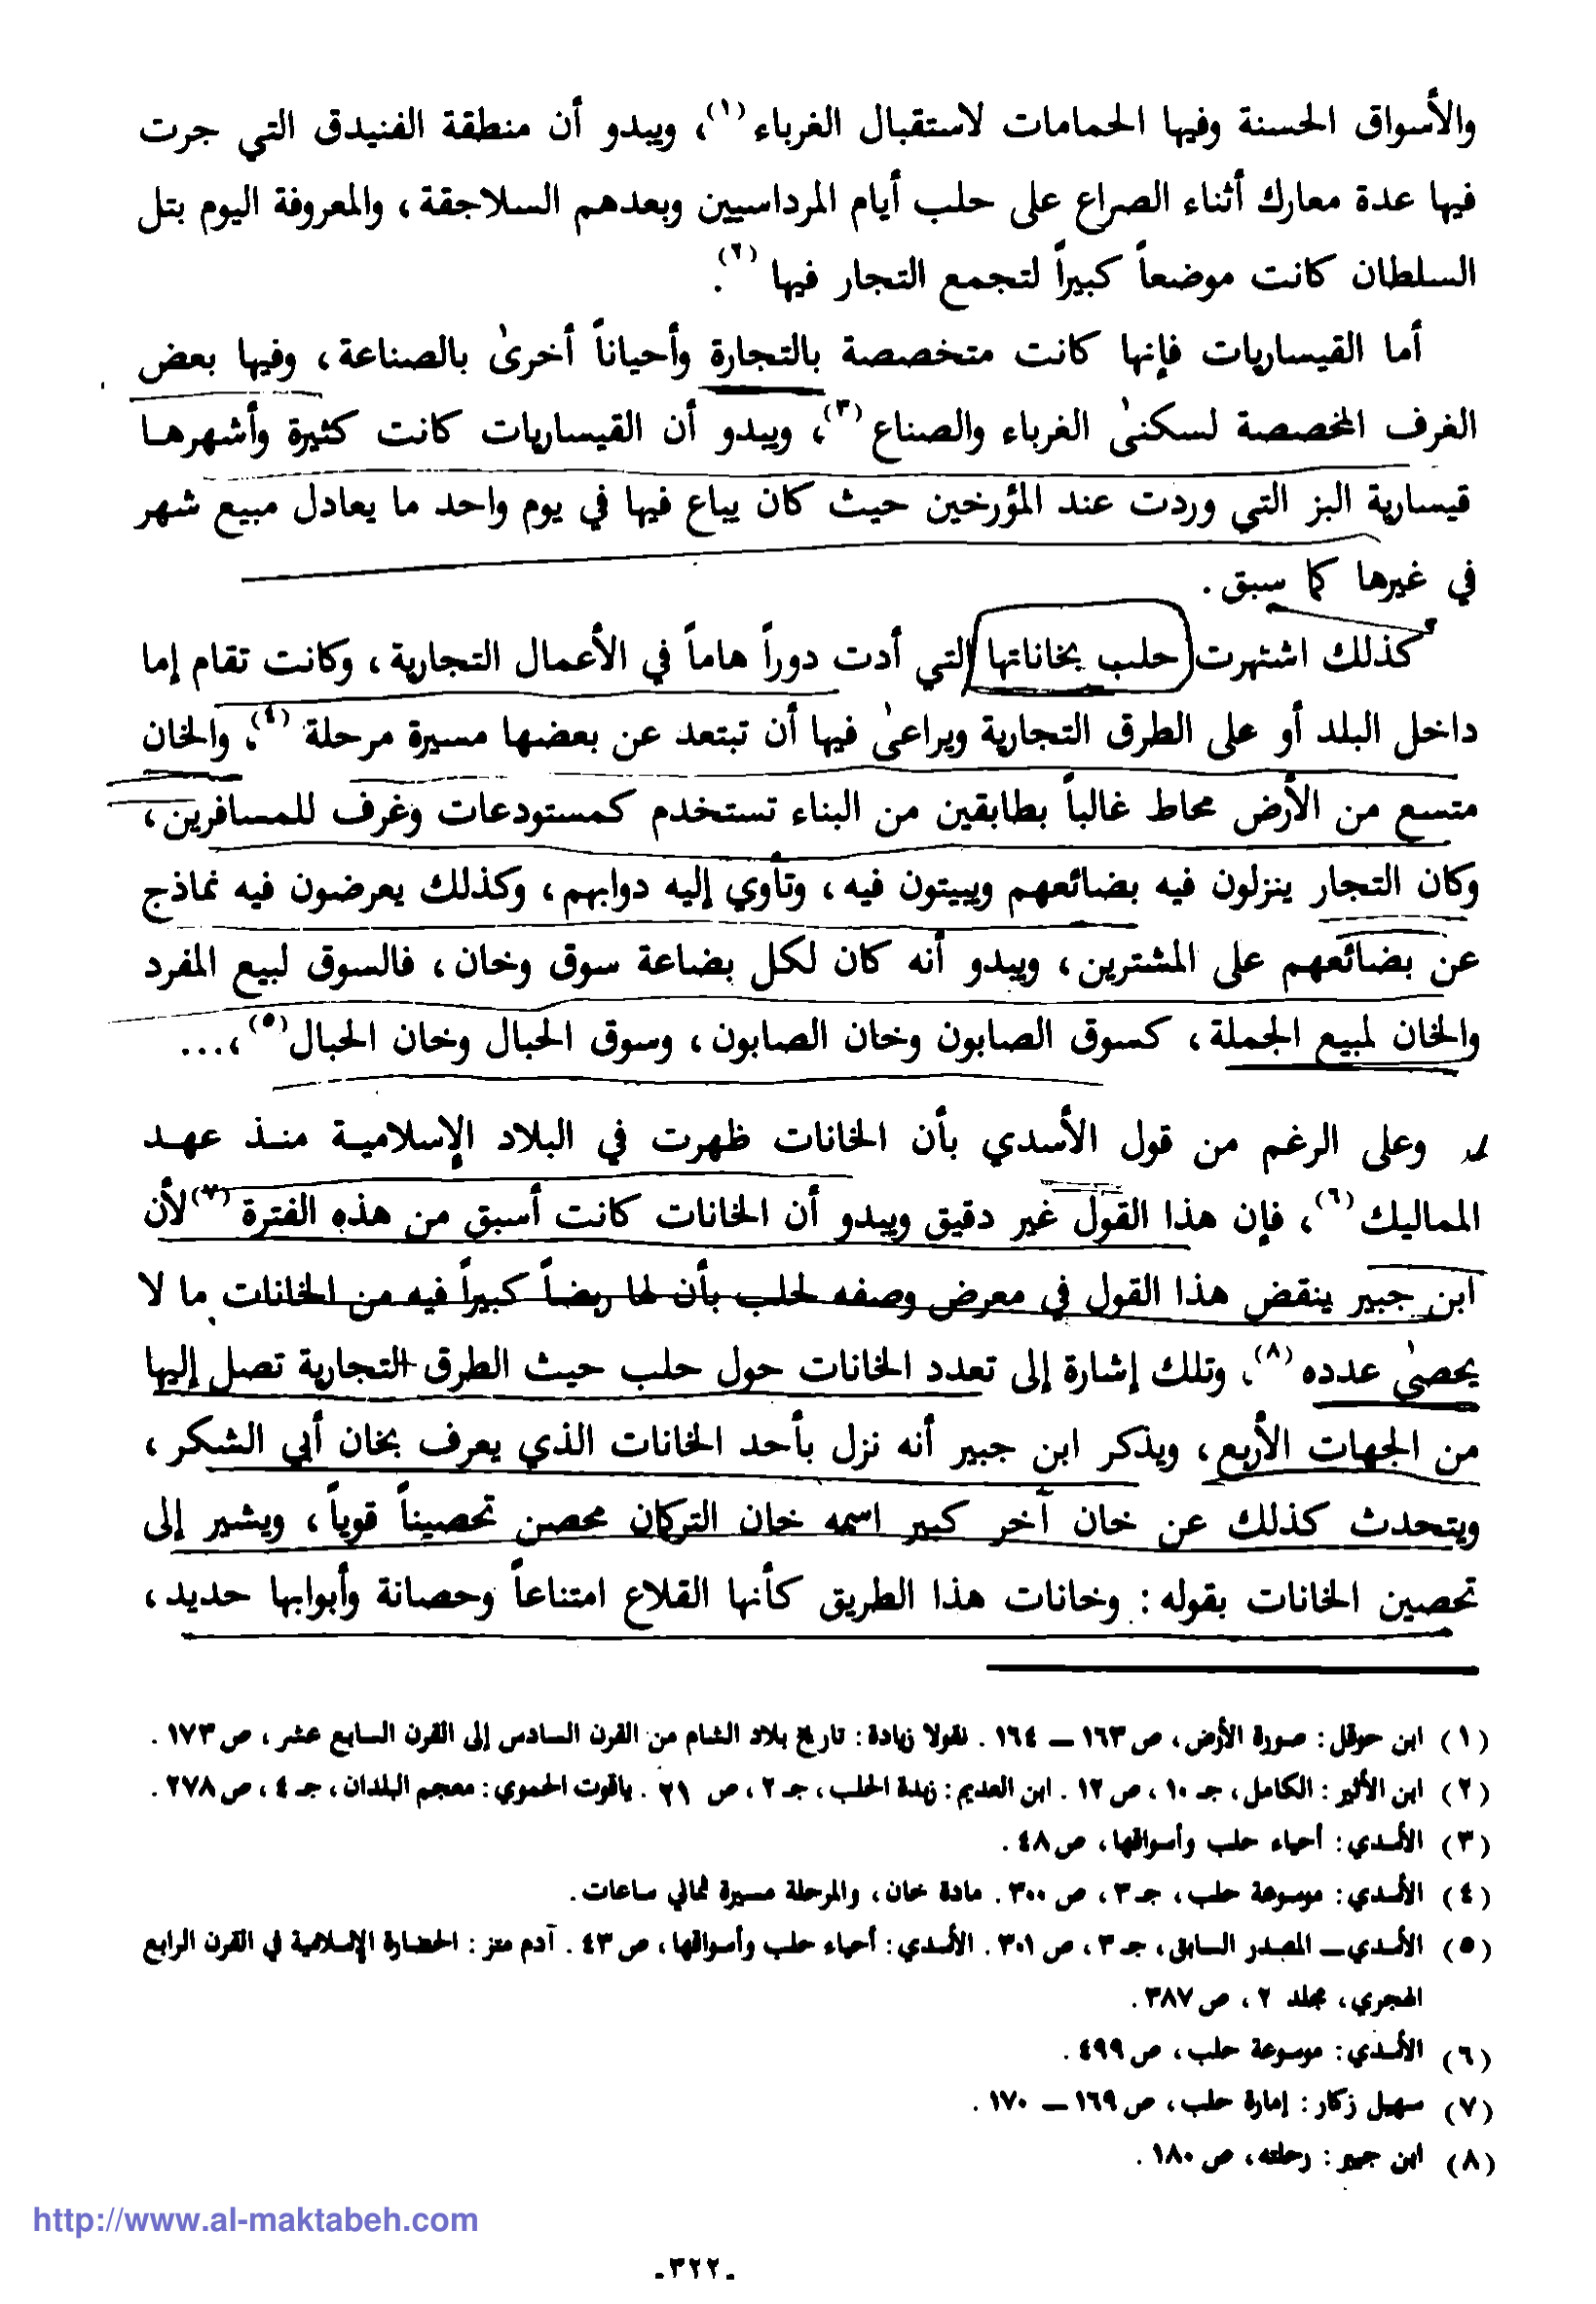 والأسواق الحسنة وفيها الحمامات لاستقبال الغرباء (١)، ويبدو أن منطقة الفنيدق التي جرت
فيها عدة معارك أثناء الصراع على حلب أيام المرداسيين وبعدهم السلاجقة، والمعروفة اليوم بتل
السلطان كانت موضعاً كبيراً لتجمع التجار فيها (٢).
أما القيساريات فإنها كانت متخصصة بالتجارة وأحياناً أخرىٰ بالصناعة، وفيها بعض
الغرف المخصصة لسكنىٰ الغرباء والصناع (٣)، ويبدو أن القيساريات كانت كثيرة وأشهرها
قيسارية البز التي وردت عند المؤرخين حيث كان يباع فيها في يوم واحد ما يعادل مبيع شهر
في غيرها كما سبق.
كذلك اشتهرت حلب بخاناتها التي أدت دوراً هاماً في الأعمال التجارية، وكانت تقام إما
داخل البلد أو على الطرق التجارية ويراعىٰ فيها أن تبتعد عن بعضها مسيرة مرحلة (٤)، والخان
متسع من الأرض محاط غالباً بطابقين من البناء تستخدم كمستودعات وغرف للمسافرين،
وكان التجار ينزلون فيه بضائعهم ويبيتون فيه، وتأوي إليه دوابهم، وكذلك يعرضون فيه نماذج
عن بضائعهم على المشترين، ويبدو أنه كان لكل بضاعة سوق وخان، فالسوق لبيع المفرد
والخان لمبيع الجملة، كسوق الصابون وخان الصابون، وسوق الحبال وخان الحبال (٥)،...
وعلى الرغم من قول الأسدي بأن الخانات ظهرت في البلاد الإسلامية منذ عهد
المماليك (٦)، فإن هذا القول غير دقيق ويبدو أن الخانات كانت أسبق من هذه الفترة (٧) لأن
ابن جبير ينقض هذا القول في معرض وصفه لحلب بأن لها ربضاً كبيراً فيه من الخانات ما لا
يحصىٰ عدده (٨)، وتلك إشارة إلى تعدد الخانات حول حلب حيث الطرق التجارية تصل إليها
من الجهات الأربع، ويذكر ابن جبير أنه نزل بأحد الخانات الذي يعرف بخان أبي الشكر،
ويتحدث كذلك عن خان آخر كبير اسمه خان التركمان محصن تحصيناً قوياً، ويشير إلى
تحصين الخانات بقوله: وخانات هذا الطريق كأنها القلاع امتناعاً وحصانة وأبوابها حديد،
(١) ابن حوقل: صورة الأرض، ص ١٦٣ ــ ١٦٤. نقولا زيادة: تاريخ بلاد الشام من القرن السادس إلى القرن السابع عشر، ص ١٧٣.
(٢) ابن الأثير: الكامل، جـ ١٠، ص ١٢. ابن العديم: زبدة الحلب، جـ ٢، ص ٢١. ياقوت الحموي: معجم البلدان، جـ ٤، ص ٢٧٨.
(٣) الأسدي: أحياء حلب وأسواقها، ص ٤٨.
(٤) الأسدي: موسوعة حلب، جـ ٣، ص ٣٠٠. مادة خان، والمرحلة مسيرة ثماني ساعات.
(٥) الأسدي ــ المصدر السابق، جـ ٣، ص ٣٠١. الأسدي: أحياء حلب وأسواقها، ص ٤٣. آدم متز: الحضارة الإسلامية في القرن الرابع
الهجري، مجلد ٢، ص ٣٨٧.
(٦) الأسدي: موسوعة حلب، ص ٤٩٩.
(٧) سهيل زكار: إمارة حلب، ص ١٦٩ ــ ١٧٠.
(٨) ابن جبير: رحلته، ص ١٨٠.
http://www.al-maktabeh.com
-٣٢٢-